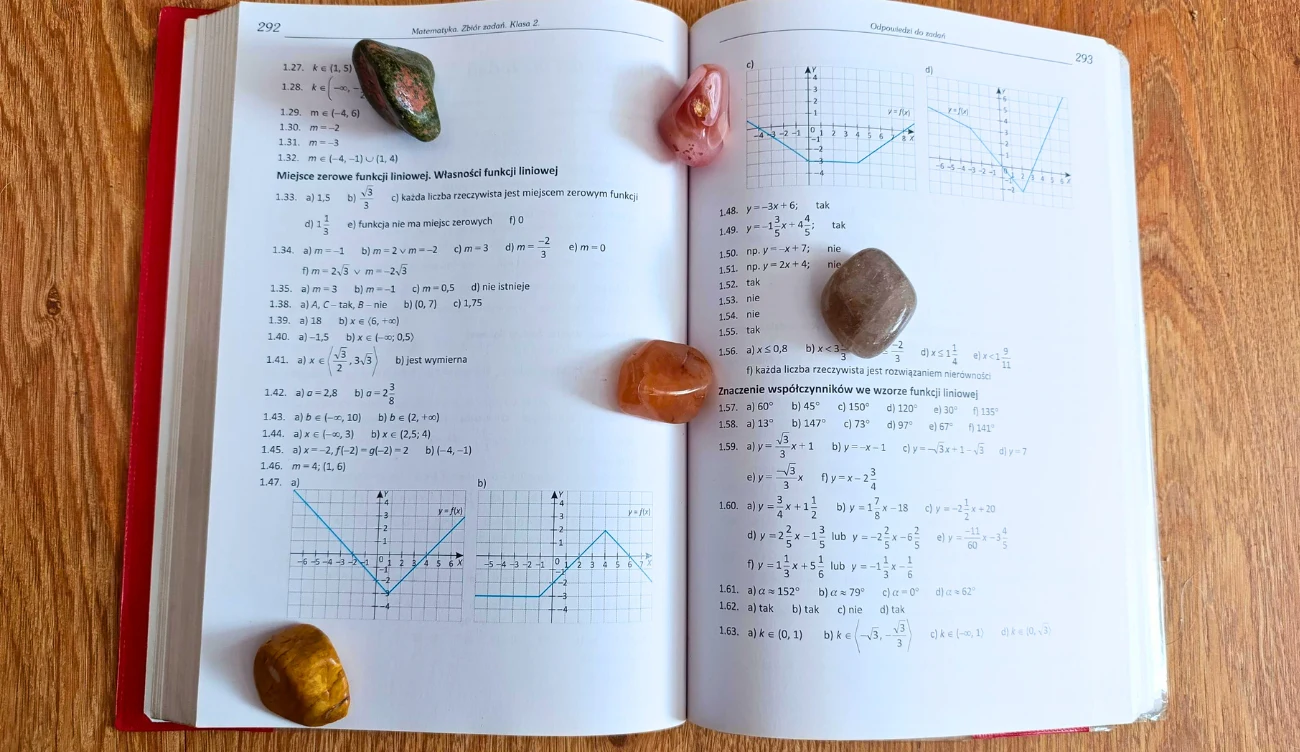 292 Matematyka. Zbiór zadań. Klasa 2.
1.27. k ∈ (1, 5)
1.28. k ∈ (−∞, −
1.29. m ∈ (−4, 6)
1.30. m = −2
1.31. m = −3
1.32. m ∈ (−4, −1) ∪ (1, 4)
Miejsce zerowe funkcji liniowej. Własności funkcji liniowej
1.33. a) 1,5 b) √3/3 c) każda liczba rzeczywista jest miejscem zerowym funkcji
d) 1 1/3 e) funkcja nie ma miejsc zerowych f) 0
1.34. a) m = −1 b) m = 2 ∨ m = −2 c) m = 3 d) m = −2/3 e) m = 0
f) m = 2√3 ∨ m = −2√3
1.35. a) m = 3 b) m = −1 c) m = 0,5 d) nie istnieje
1.38. a) A, C – tak, B – nie b) (0, 7) c) 1,75
1.39. a) 18 b) x ∈ ⟨6, +∞)
1.40. a) −1,5 b) x ∈ (−∞; 0,5⟩
1.41. a) x ∈ ⟨√3/2, 3√3⟩ b) jest wymierna
1.42. a) a = 2,8 b) a = 2 3/8
1.43. a) b ∈ (−∞, 10) b) b ∈ (2, +∞)
1.44. a) x ∈ (−∞, 3) b) x ∈ (2,5; 4)
1.45. a) x = −2, f(−2) = g(−2) = 2 b) (−4, −1)
1.46. m = 4; (1, 6)
1.47. a) b)
y = f(x) y = f(x)
Odpowiedzi do zadań 293
c) d)
y = f(x) y = f(x)
1.48. y = −3x + 6; tak
1.49. y = −1 3/5 x + 4 4/5; tak
1.50. np. y = −x + 7; nie
1.51. np. y = 2x + 4; nie
1.52. tak
1.53. nie
1.54. nie
1.55. tak
1.56. a) x ≤ 0,8 b) x < 3 −2/3 d) x ≤ 1 1/4 e) x < 1 9/11
f) każda liczba rzeczywista jest rozwiązaniem nierówności
Znaczenie współczynników we wzorze funkcji liniowej
1.57. a) 60° b) 45° c) 150° d) 120° e) 30° f) 135°
1.58. a) 13° b) 147° c) 73° d) 97° e) 67° f) 141°
1.59. a) y = √3/3 x + 1 b) y = −x − 1 c) y = −√3x + 1 − √3 d) y = 7
e) y = −√3/3 x f) y = x − 2 3/4
1.60. a) y = 3/4 x + 1 1/2 b) y = 1 7/8 x − 18 c) y = −2 1/2 x + 20
d) y = 2 2/5 x − 1 3/5 lub y = −2 2/5 x − 6 2/5 e) y = −11/60 x − 3 4/5
f) y = 1 1/3 x + 5 1/6 lub y = −1 1/3 x − 1/6
1.61. a) α ≈ 152° b) α ≈ 79° c) α = 0° d) α ≈ 62°
1.62. a) tak b) tak c) nie d) tak
1.63. a) k ∈ (0, 1) b) k ∈ ⟨−√3, −√3/3⟩ c) k ∈ (−∞, 1) d) k ∈ (0, √3)